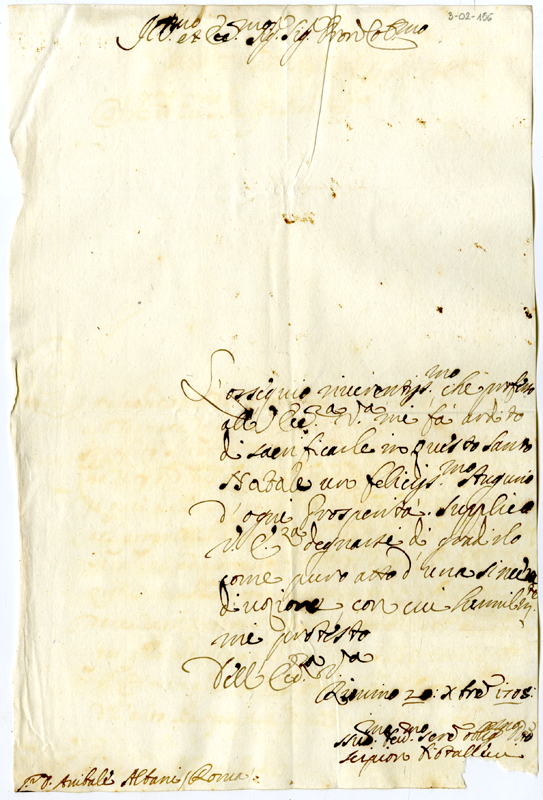 3-02-156
Ill.mo et Ecc.mo Sig. Sig. Pron Col.mo
L'ossequio riverentiss.mo che professo
all' Ecc.za V.a mi fà ardito
di sacrificarle in questo Santo
Natale un feliciss.mo Augurio
d'ogni Prosperità. Supplico
V. E.za degnarsi di gradirlo
come puro atto d'una sincera
divozione, con cui humilm.te
mi protesto
Dell' Ecc.za V.a
Rimino 20: Xbre 1708:
D. Anibale Albani / Roma